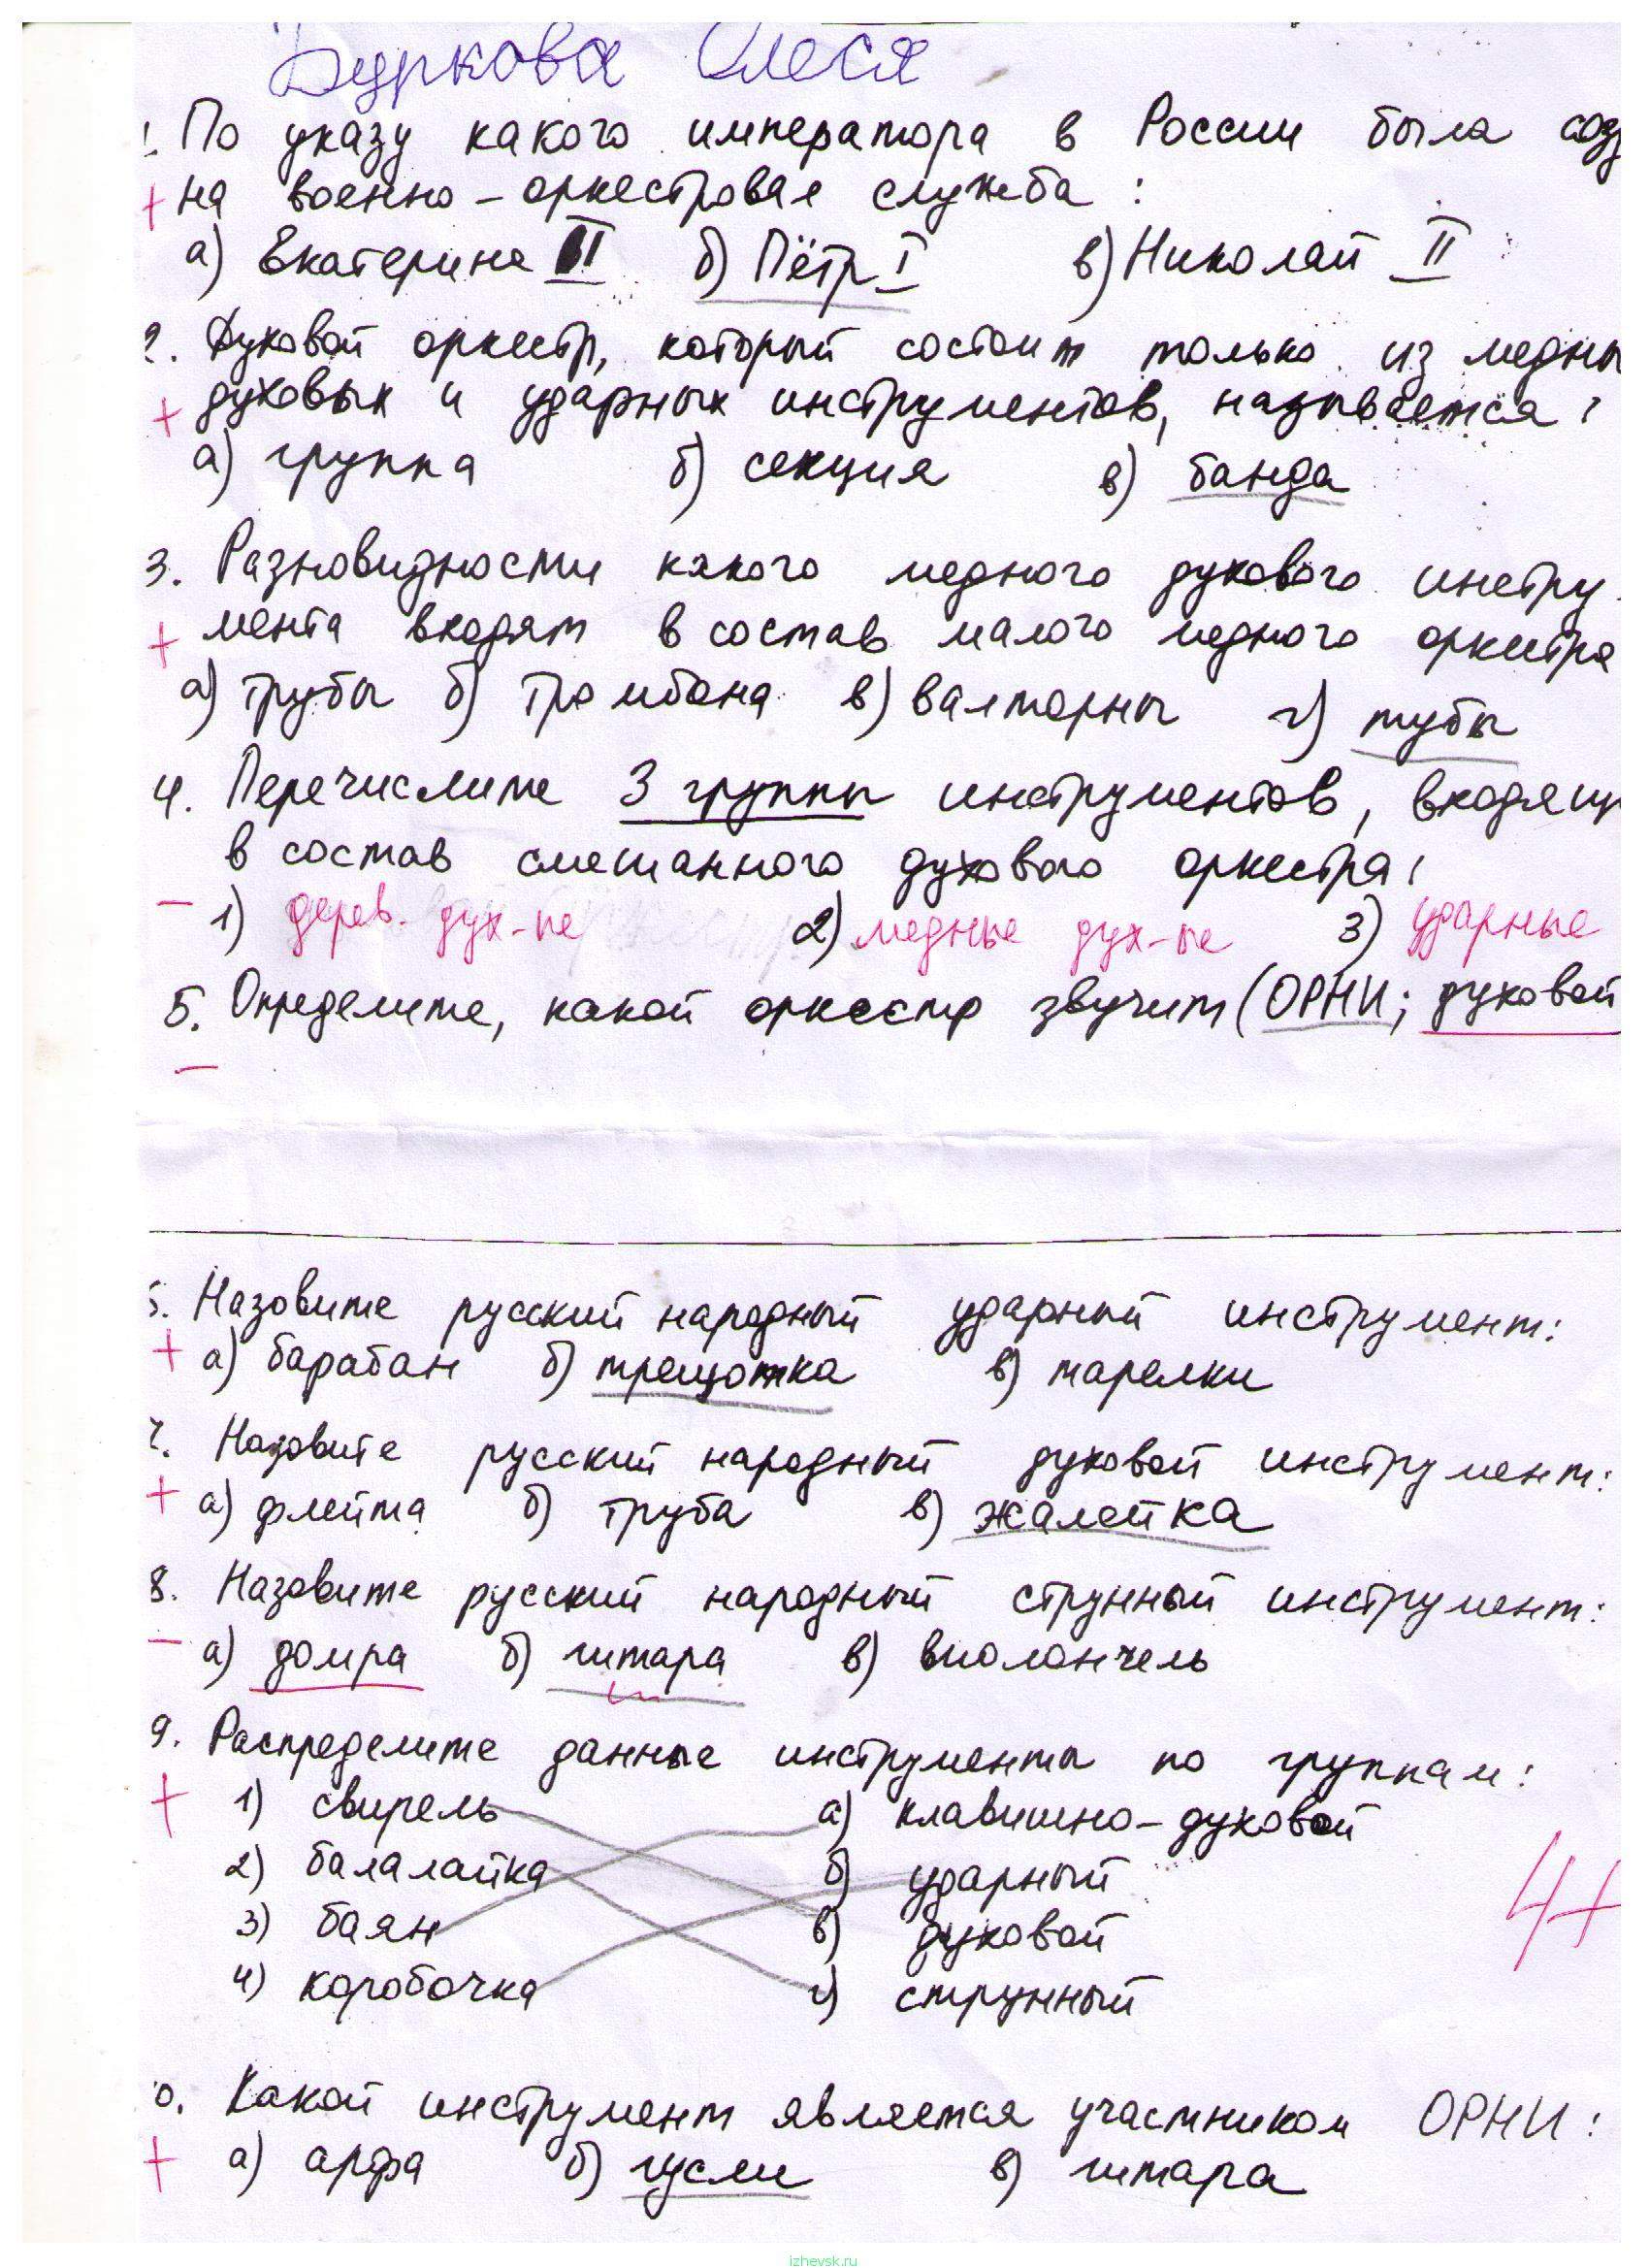 Буркова Олеся
1. По указу какого императора в России была соз
+ на военно-оркестровая служба:
а) Екатерина II б) Пётр I в) Николай II
2. Духовой оркестр, который состоит только из медны
+ духовых и ударных инструментов, называется:
а) группа б) секция в) банда
3. Разновидности какого медного духового инстру-
+ мента входят в состав малого медного оркестра
а) трубы б) тромбона в) валторны г) тубы
4. Перечислите 3 группы инструментов, входящи
в состав смешанного духового оркестра:
- 1) дерев. дух-ые 2) медные дух-ые 3) ударные
5. Определите, какой оркестр звучит (ОРНИ; духовой
-
6. Назовите русский народный ударный инструмент:
+ а) барабан б) трещотка в) тарелки
7. Назовите русский народный духовой инструмент:
+ а) флейта б) труба в) жалейка
8. Назовите русский народный струнный инструмент:
- а) домра б) гитара в) виолончель
9. Распределите данные инструменты по группам:
+ 1) свирель а) клавишно-духовой
2) балалайка б) ударный
3) баян в) духовой
4) коробочка г) струнный
4+
10. Какой инструмент является участником ОРНИ:
+ а) арфа б) гусли в) гитара
izhevsk.ru